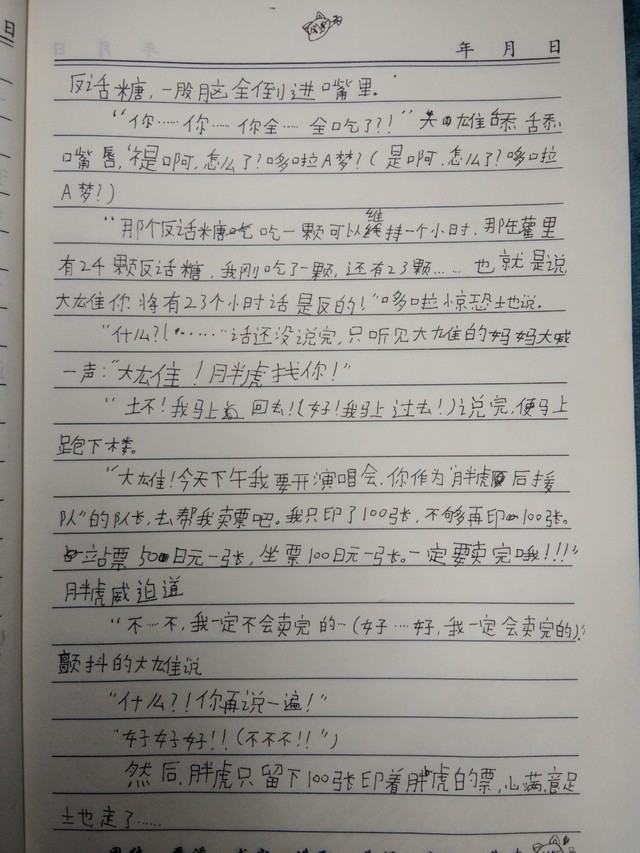 年 月 日
反话糖,一股脑全倒进嘴里.
“你……你……你全……全吃了?!”大雄舔舔
嘴唇,“不是啊,怎么了?哆啦A梦?(是啊,怎么了?哆啦
A梦?)
“那个反话糖吃一颗可以维持一个小时,那罐里
有24颗反话糖,我刚吃了一颗,还有23颗……也就是说,
大雄你将有23个小时话是反的!”哆啦惊恐地说.
“什么?!……”话还没说完,只听见大雄的妈妈大喊
一声:“大雄!胖虎找你!”
“坏!我马上回去!(好!我马上过去!)说完,便马上
跑下楼。
“大雄!今天下午我要开演唱会,你作为“胖虎后援
队”的队长,去帮我卖票吧。我只印了100张,不够再印100张。
站票50日元一张,坐票100日元一张。一定要卖完哦!!!”
胖虎威迫道
“不……不,我一定不会卖完的…(好……好,我一定会卖完的)!”
颤抖的大雄说
“什么?!你再说一遍!”
“好好好!!(不不不!!”)
然后,胖虎只留下100张印着胖虎的票,心满意足
地走了……